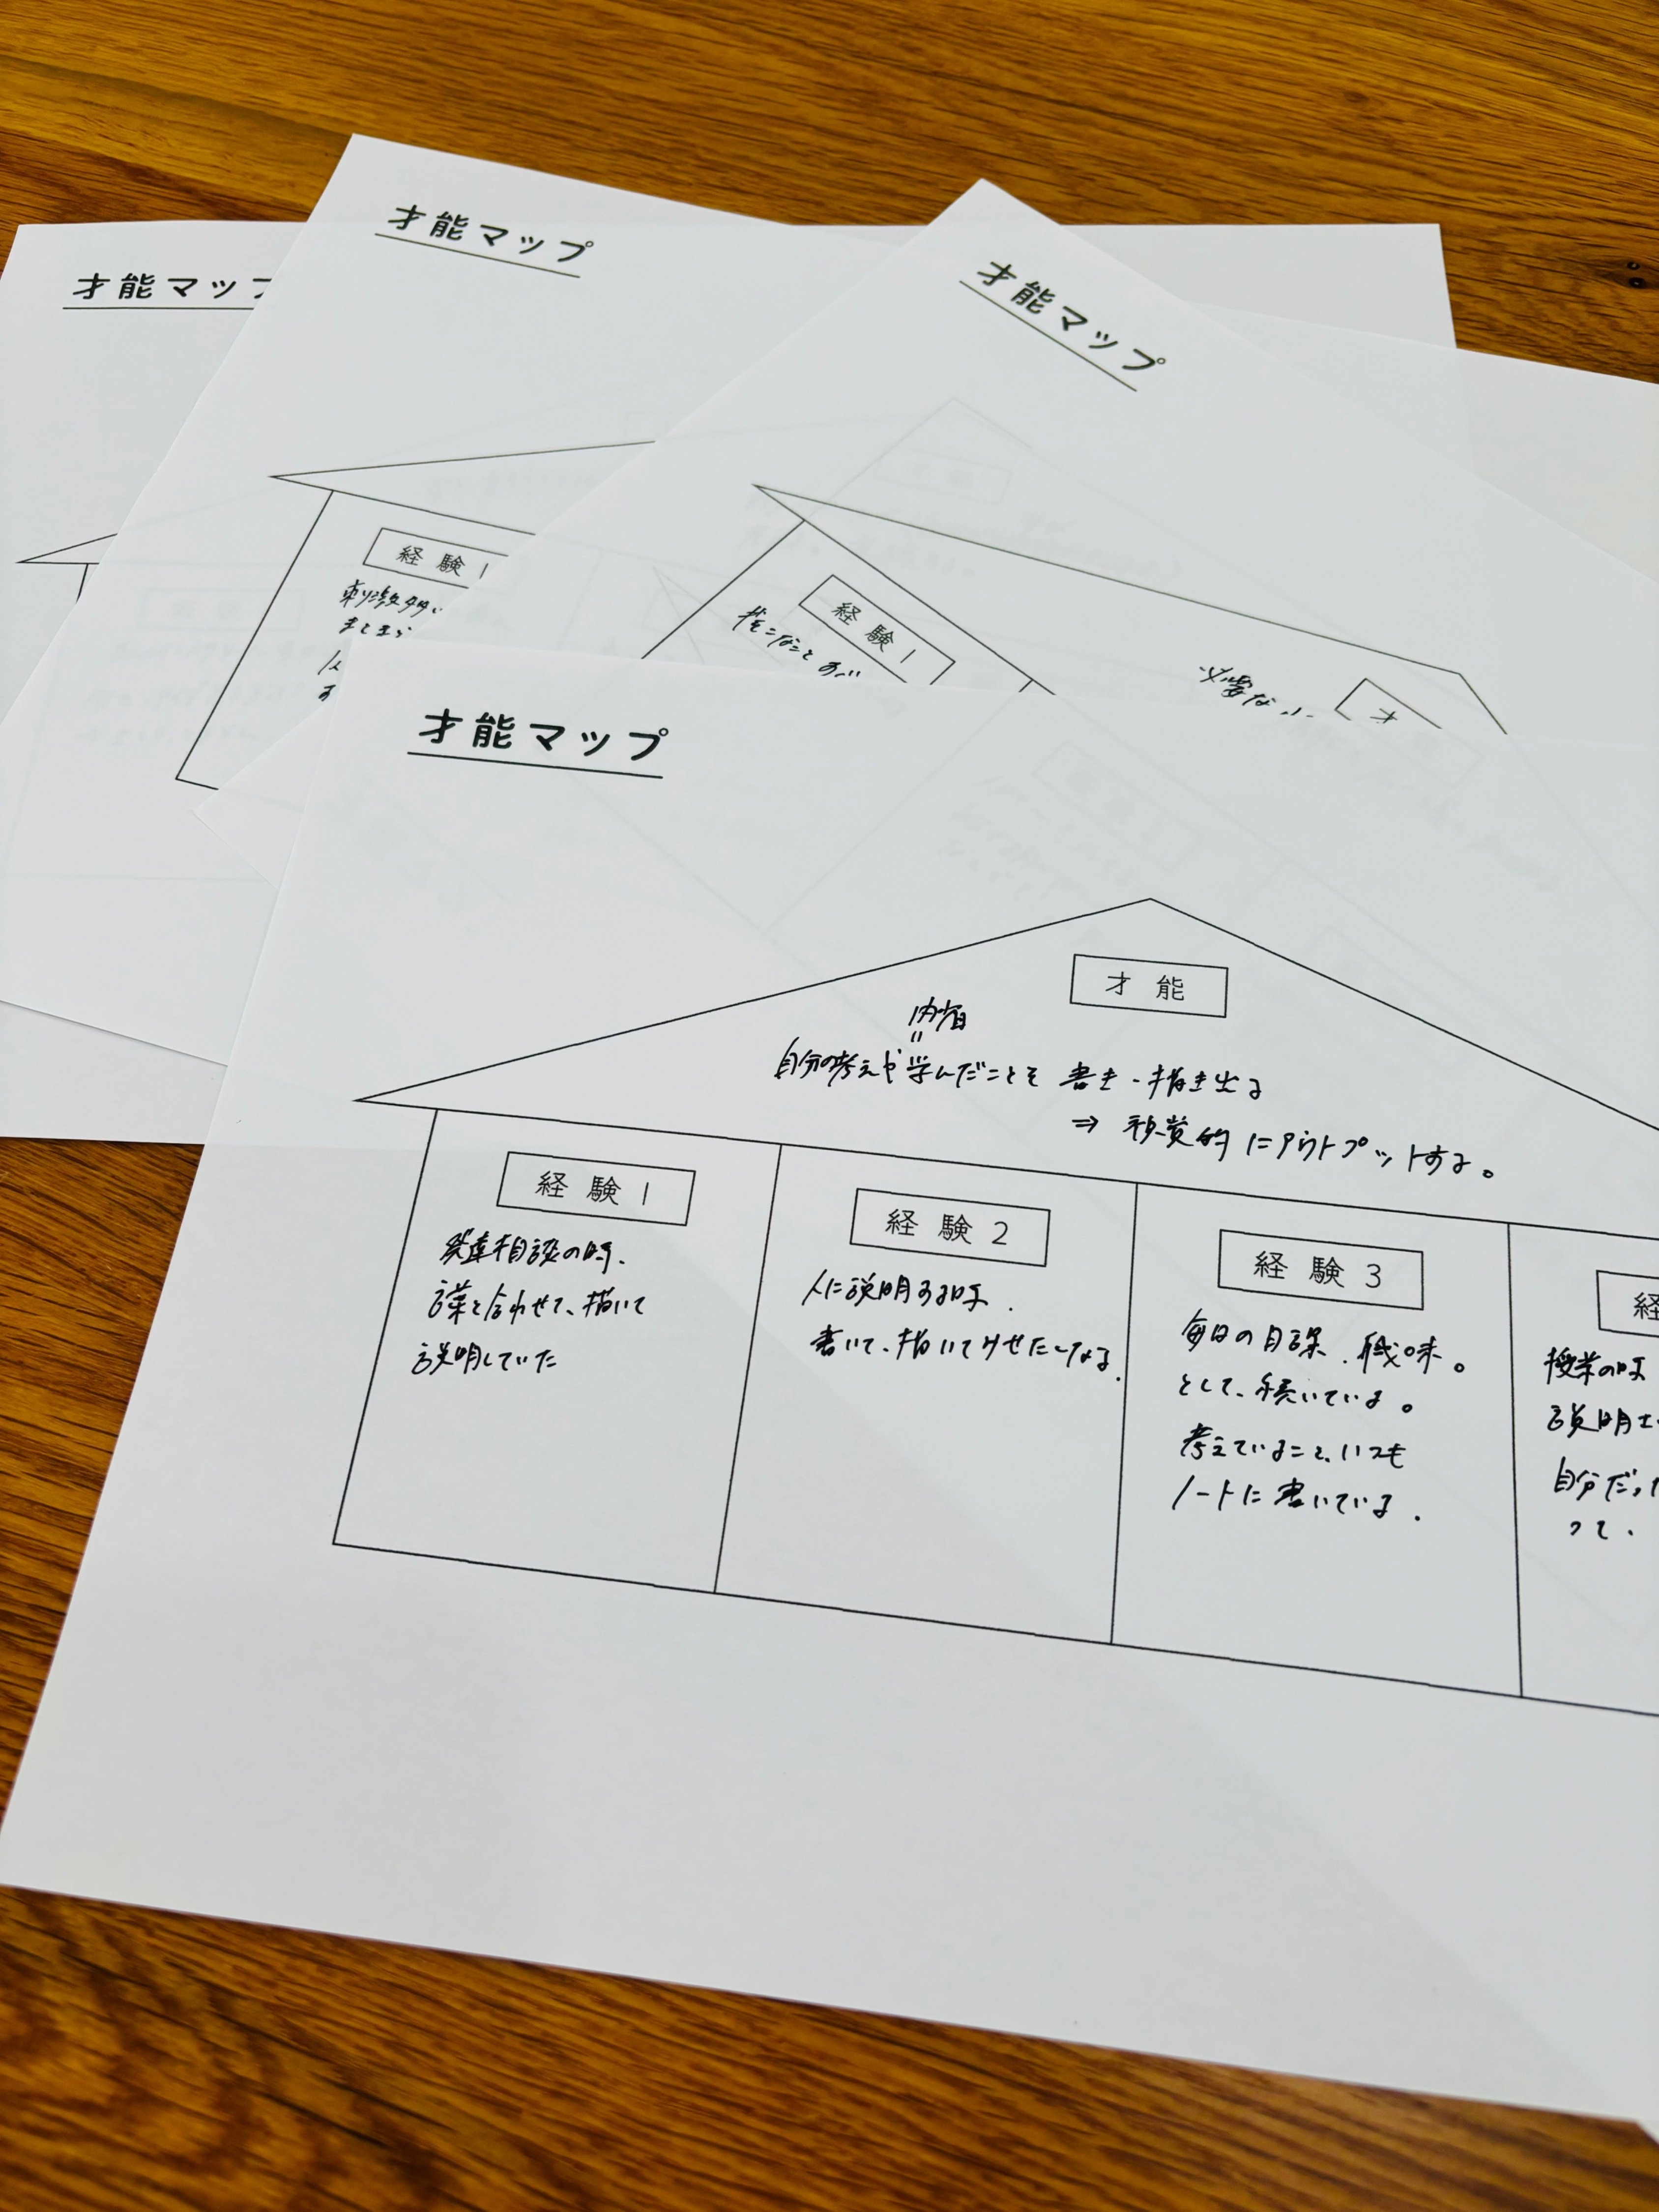 才能マップ
才能マップ
才能マップ
経験1
刺激
経験1
必要な
才能マップ
才能
内省
自分の考えや学んだことを 書き・描き出る
⇒ 視覚的にアウトプットする。
経験1
発達相談の時、
言葉と合わせて、描いて
説明していた
経験2
人に説明する時、
書いて、描いてみせたくなる。
経験3
毎日の日課、趣味。
として、続いている。
考えていること、いつも
ノートに書いている。
経
授業の時
説明
自分だった
って、